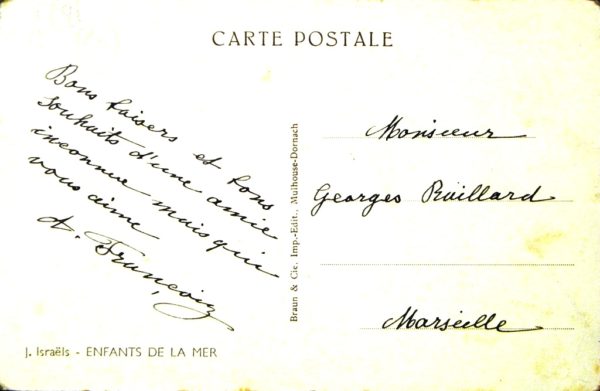 CARTE POSTALE
Bons baisers et bons
souhaits d'une amie
inconnue mais qui
vous aime
A. Françoiz
Braun & Cie. Imp.-Edit., Mulhouse-Dornach
Monsieur
Georges Raillard
Marseille
J. Israëls - ENFANTS DE LA MER